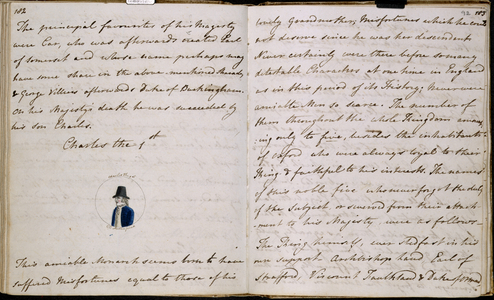 182
The principal favourites of his Majesty
were Car, who was afterwards created Earl
of Somerset and whose name perhaps may
have some share in the above-mentioned Sharade,
& George Villiers afterwards Duke of Buckingham.
On his Majesty's death he was succeeded by
his son Charles.
Charles the 1st
This amiable Monarch seems born to have
suffered Misfortunes equal to those of his
183
lovely Grandmother; Misfortunes which he could
not deserve since he was her descendant.
Never certainly were there before so many
detestable Characters at one time in England
as in this period of its History; Never were
amiable Men so scarce. The number of
them throughout the whole Kingdom amount-
ing only to five, besides the inhabitants
of Oxford who were always loyal to their
King & faithful to his interests. The names
of this noble five who never forgot the duty
of the Subject, or swerved from their attach-
ment to his Majesty, were as follows—
The King himself, ever stedfast in his
own support Archbishop Laud, Earl of
Strafford, Viscount Faulkland & Duke of Ormond